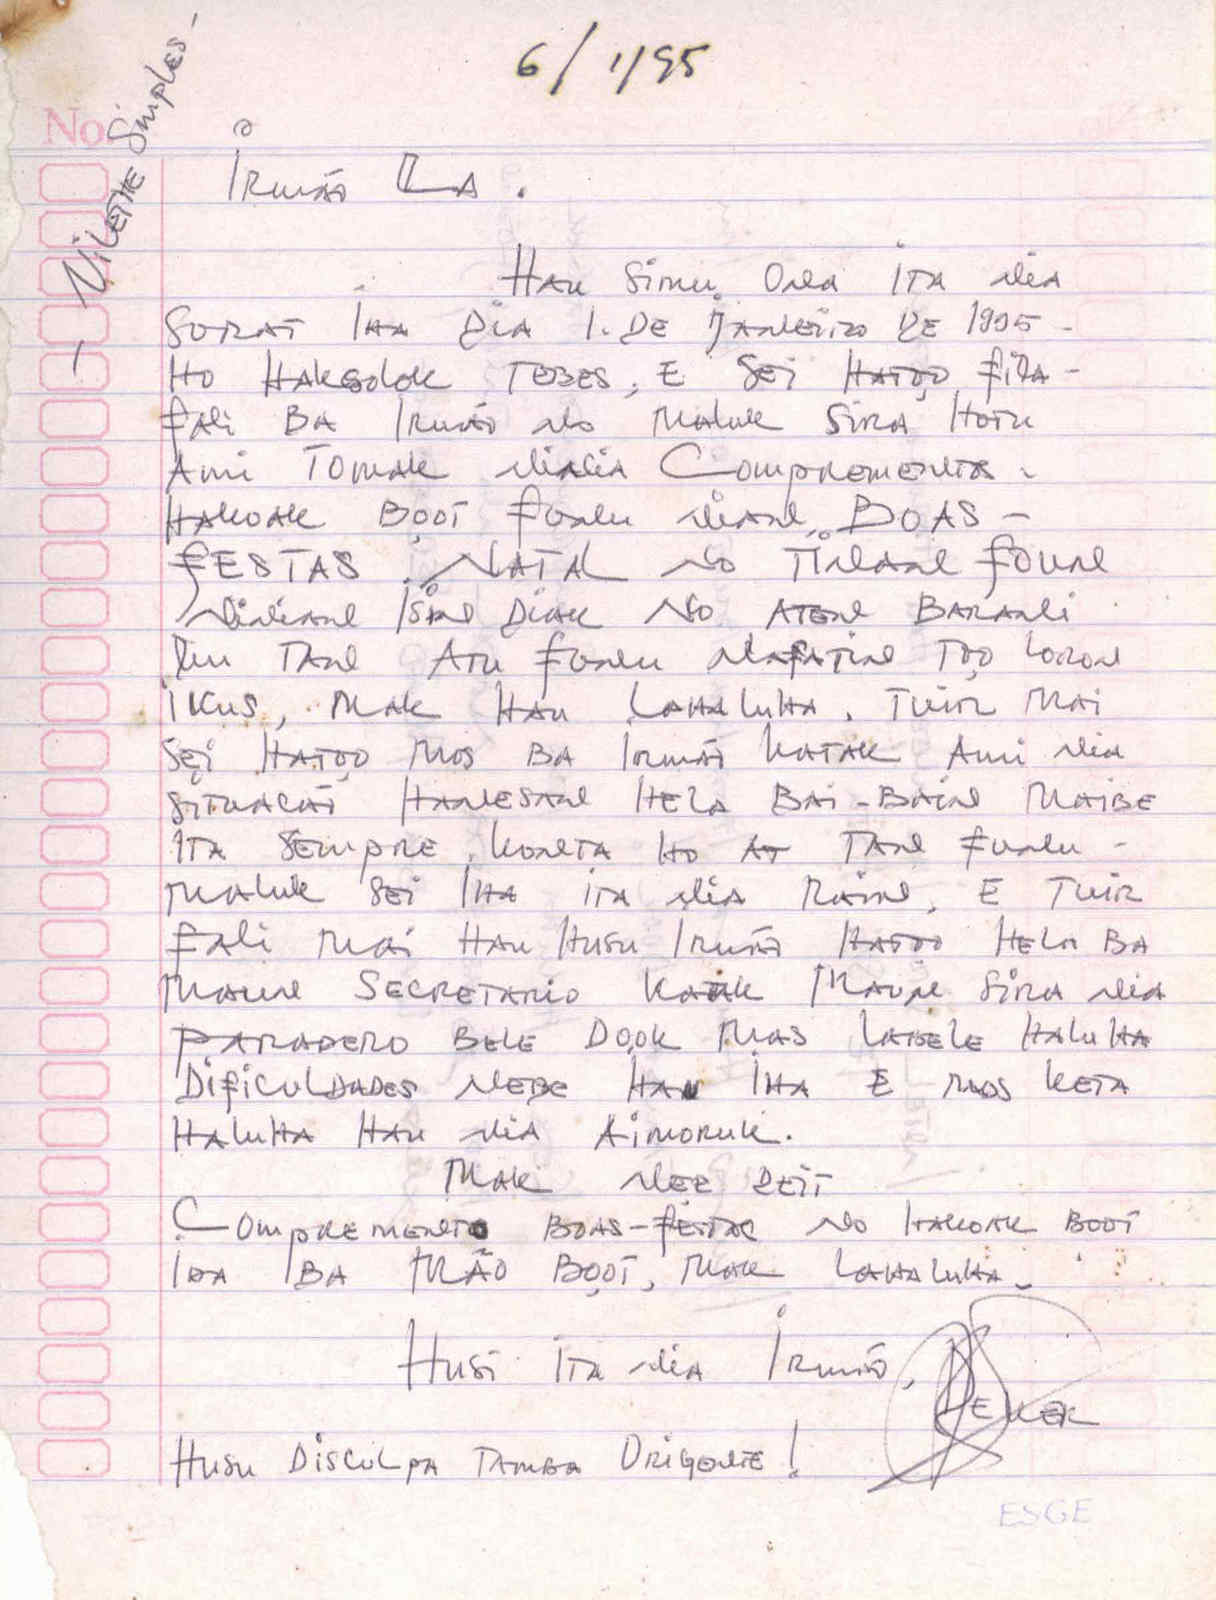 6/1/95
Bilethe Simples
No.
Irmão La.
Hau Simu Ona ITA Nia
SURAT IHA DIA 1. DE JANEIRO DE 1995-
HO HAKSOLOK TEBES, E SEI HATOO fila-
fali BA Irmão No Maluk SIRA HOTU
AMI TOMAK NIA Comprementos.
HAKOAK BOOT FUNU NIAN, BOAS-
FESTAS, NATAL No TINAN FOUN
ISIN DIAK NO ATEN BARANI
TAN ATU FUNU NAFATIN TOO LORON
IKUS, MAK HAU LAHALUHA. TUIR MAI
SEI HATOO MOS BA Irmão KATAK AMI NIA
SITUACÃO HANESAN HELA BAI-BAIN MAIBE
ITA SEMPRE KONTA HO AT TAN FUNU-
MALUK SEI IHA ITA NIA RAIN, E TUIR
FALI MAI HAU HUSU Irmão HATOO HELA BA
MAUN SECRETARIO KATAK MAUN SIRA NIA
PARADERO BELE DOOK MAS LABELE HALUHA
DIFICULDADES NEBE HAU IHA E MOS KETA
HALUHA HAU NIA AIMORUK.
MAK NEE DEIT
COMPREMENTO BOAS-FESTAS NO HAKOAK BOOT
IDA BA MÃO BOOT, MAK LAHALUHA.
HUSI ITA NIA Irmão,
HUSU DISCULPA TAMBA ORIGONTE!
ESGE